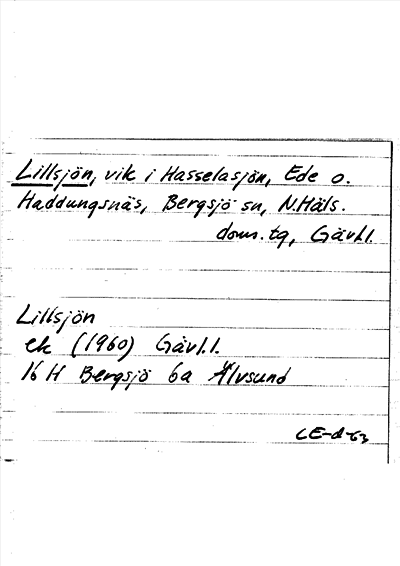 Lillsjön, vik i Hasselasjön, Ede o.
Haddungsnäs, Bergsjö sn, N.Häls.
doms.tg, Gävl.l.
Lillsjön
ek (1960) Gävl.l.
16 H Bergsjö 6a Älvsund
CE-d-63